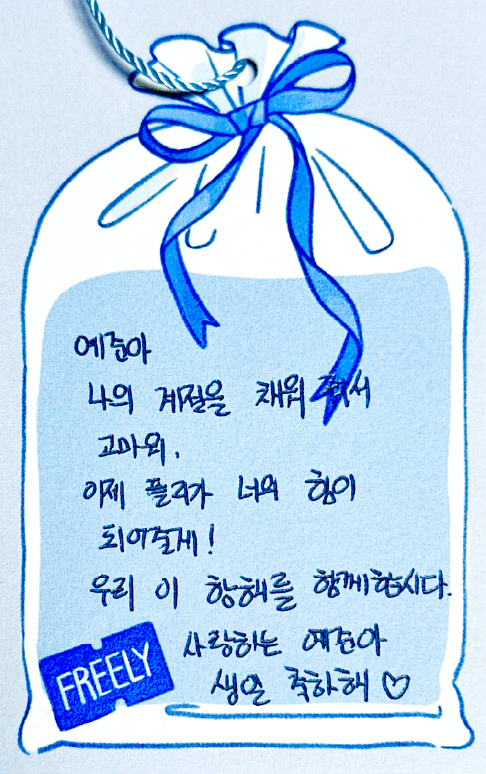 예준아
나의 계절을 채워 줘서
고마워.
이제 플리가 너의 힘이
되어줄게!
우리 이 항해를 함께합시다.
사랑하는 예준아
생일 축하해 ♡
FREELY